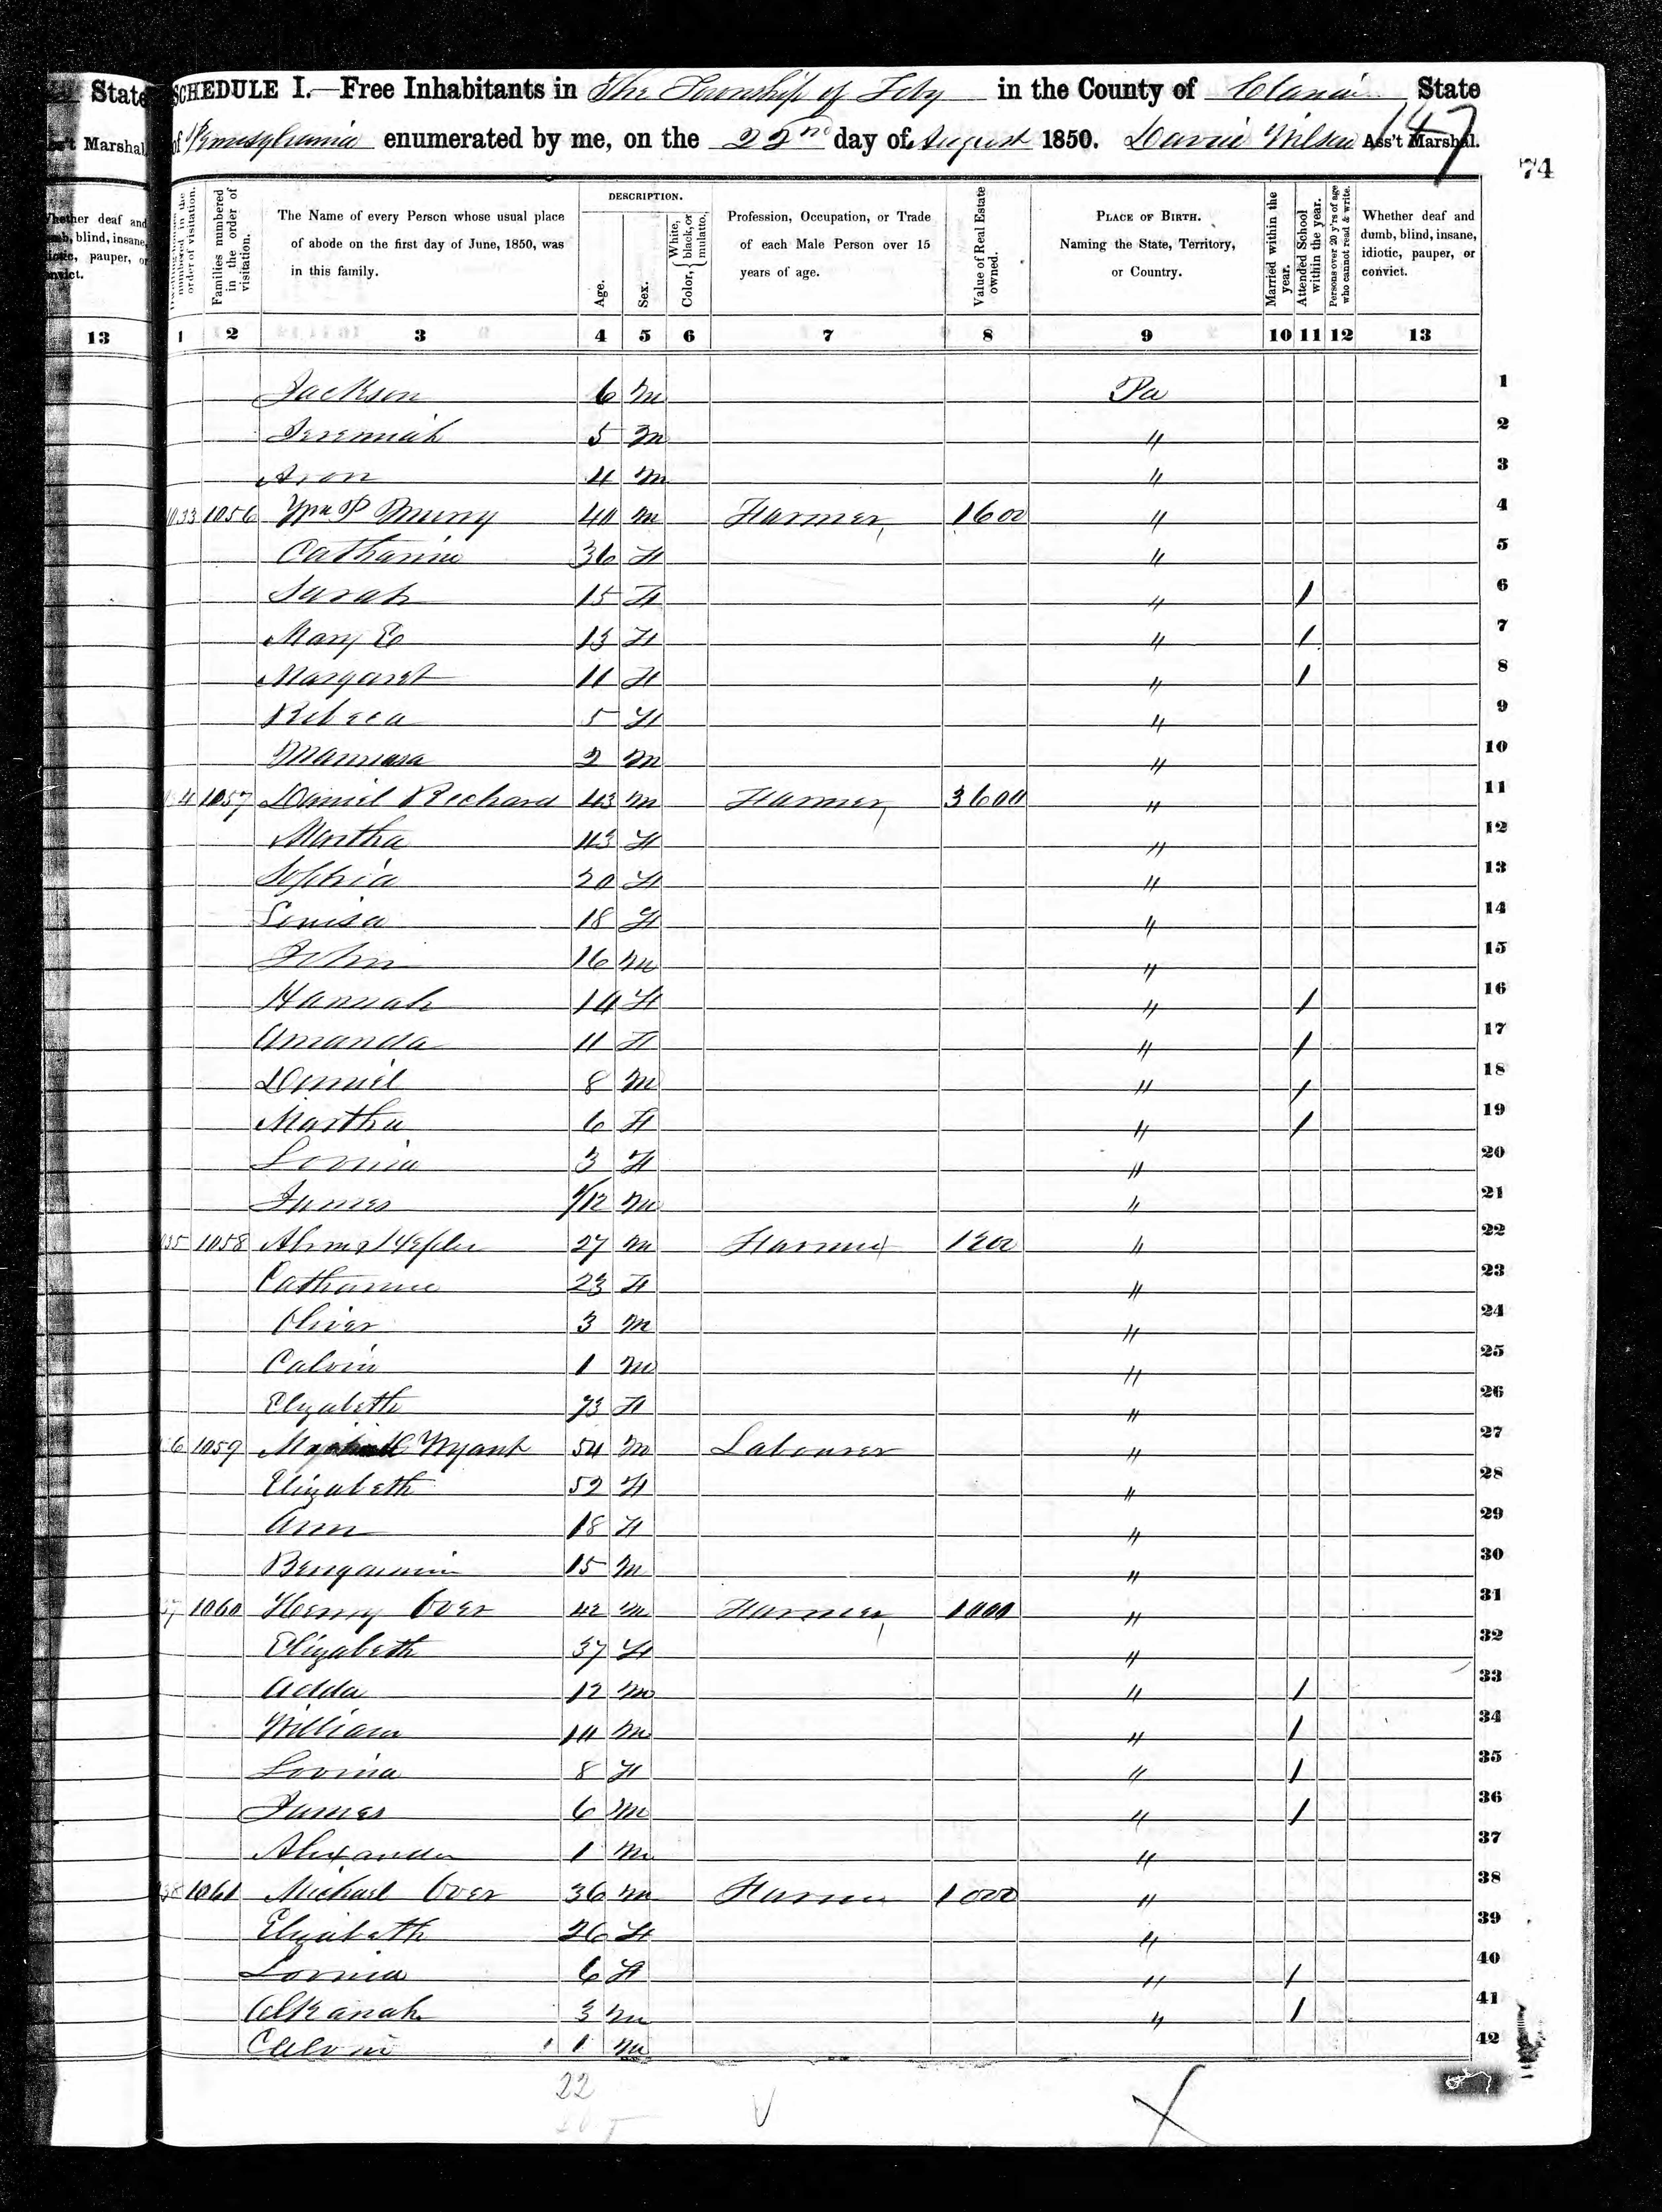 State
Marshal
Whether deaf and
dumb, blind, insane,
idiotic, pauper, or
convict.
13
SCHEDULE I.—Free Inhabitants in The Township of Toby in the County of Clarion State
of Pennsylvania enumerated by me, on the 22nd day of August 1850. Wilson Ass't Marshal.
147
74
numbered in the order of visitation.
Families numbered in the order of visitation.
The Name of every Person whose usual place of abode on the first day of June, 1850, was in this family.
DESCRIPTION.
Age.
Sex.
Color, { White, black, or mulatto.
Profession, Occupation, or Trade of each Male Person over 15 years of age.
Value of Real Estate owned.
PLACE OF BIRTH. Naming the State, Territory, or Country.
Married within the year.
Attended School within the year.
Persons over 20 y'rs of age who cannot read & write.
Whether deaf and dumb, blind, insane, idiotic, pauper, or convict.
1 2 3 4 5 6 7 8 9 10 11 12 13
Jackson 6 M Pa 1
Jeremiah 5 M " 2
Aron 4 M " 3
1033 1056 Wm P 40 M Farmer 1600 " 4
Catharine 36 F " 5
Sarah 15 F " 1 6
Mary E 13 F " 1 7
Margaret 11 F " 1 8
Rebeca 5 F " 9
2 M " 10
4 1057 Daniel Richard 43 M Farmer 3600 " 11
Martha 43 F " 12
Sophia 20 F " 13
Louisa 18 F " 14
John 16 M " 15
Hannah 14 F " 1 16
Amanda 11 F " 1 17
Daniel 8 M " 1 18
Martha 6 F " 1 19
Lovina 3 F " 20
James /12 M " 21
35 1058 27 M Farmer 1200 " 22
Catharine 23 F " 23
Oliver 3 M " 24
Calvin 1 M " 25
Elizabeth 73 F " 26
6 1059 Wyant 54 M Labourer " 27
Elizabeth 52 F " 28
Ann 18 F " 29
Bengamin 15 M " 30
7 1060 Henry Over 42 M Farmer 1000 " 31
Elizabeth 37 F " 32
Adda 12 M " 1 33
William 10 M " 1 34
Lovina 8 F " 1 35
James 6 M " 1 36
Alexander 1 M " 37
38 1061 Michael Over 36 M Farmer 1000 " 38
Elizabeth 26 F " 39
Lovina 6 F " 1 40
Elkanah 3 M " 1 41
Calvin 1 M 42
22